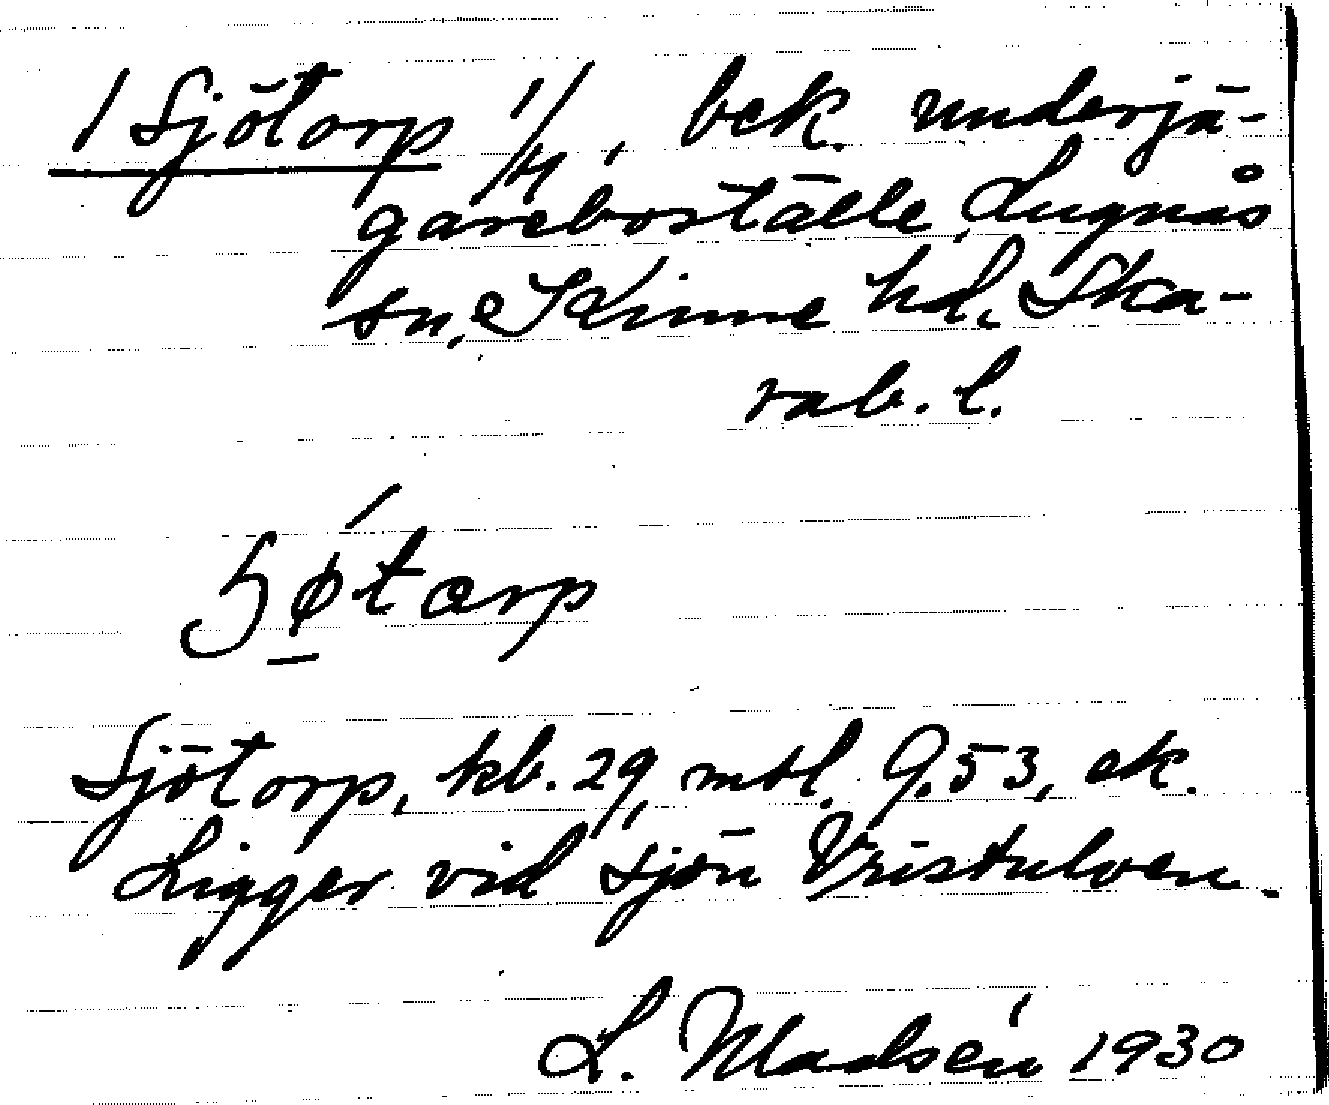 1 Sjötorp 1/4, bek. underjä-
gareboställe, Lugnås
sn, Kinne hd, Ska-
rab. l.
Sjötorp, kb. 29, mtl. 9.53, ek.
Ligger vid sjön Vristulven.
L. Madsén 1930